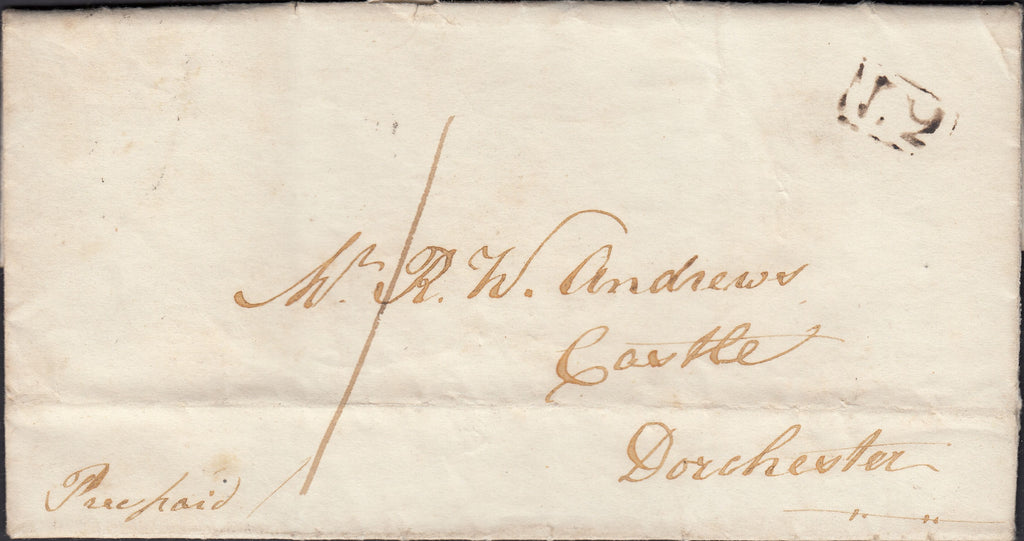 J. 2
/
Mr. R. W. Andrews
Castle
Dorchester
Pree paid /